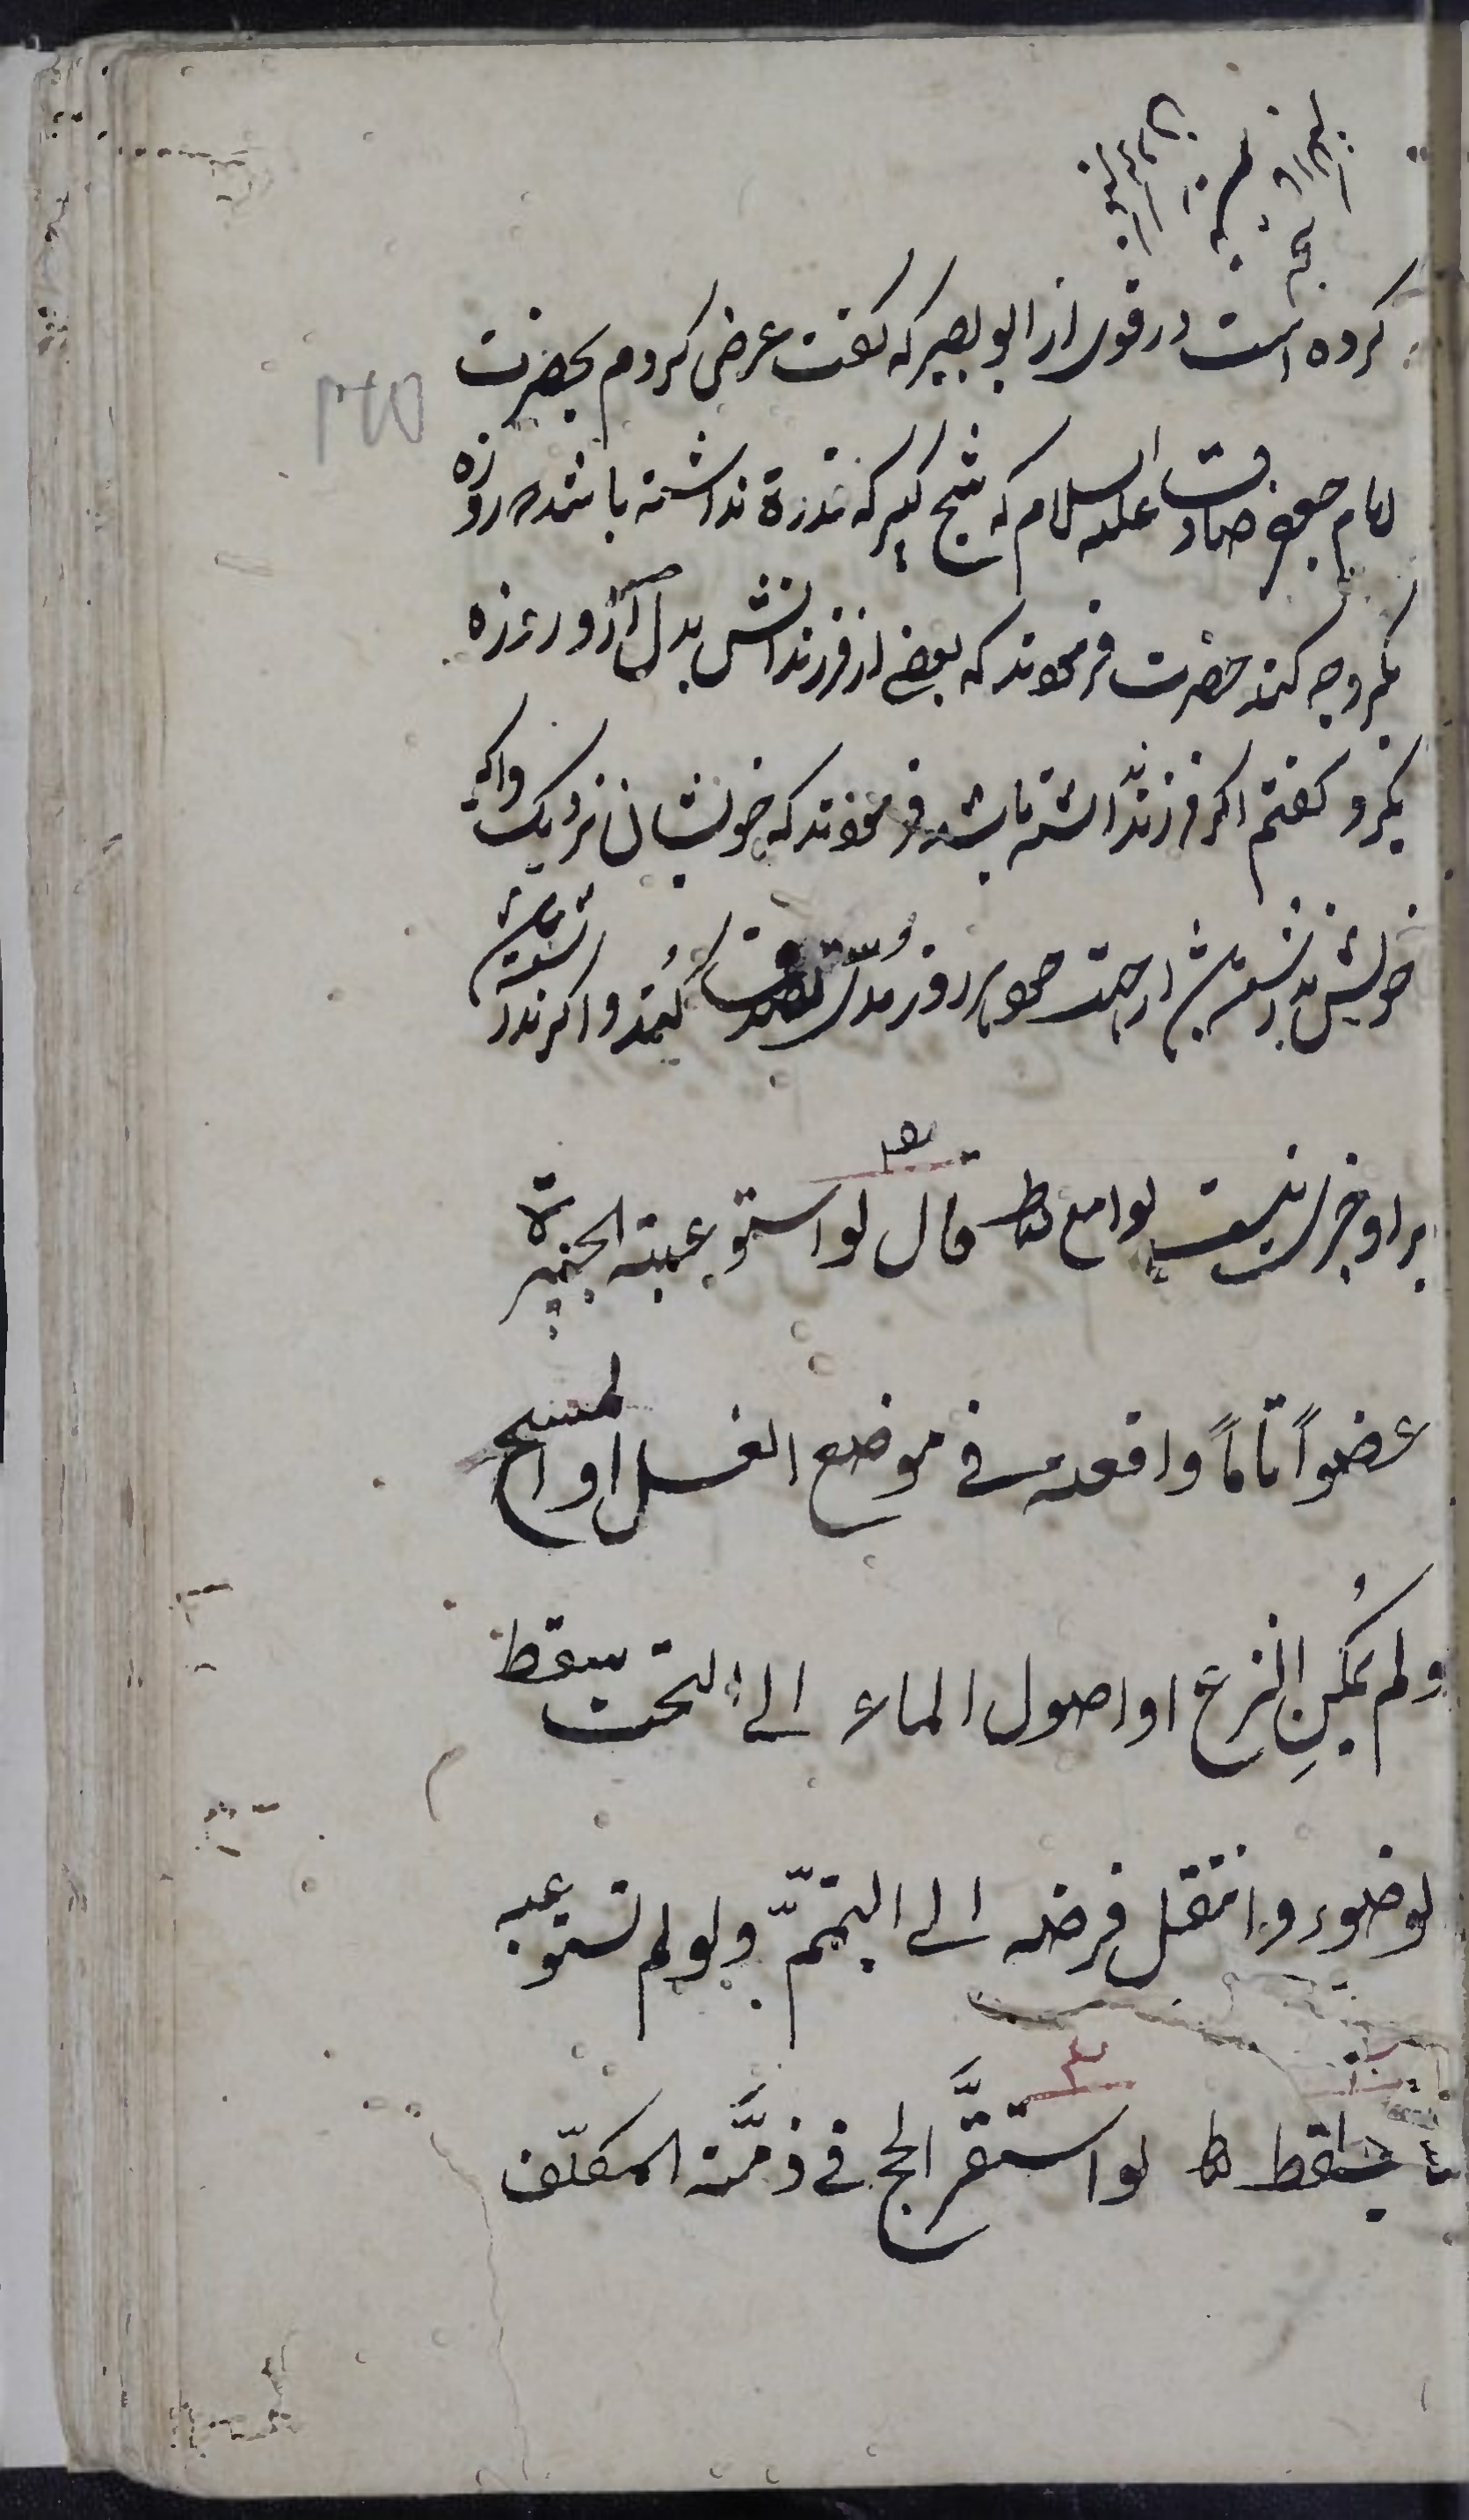 کرده است در قوی از ابو بصیر که گفت عرض کردم بحضرت
امام جعفر صادق علیه السلام که شیخ کبیر که قدرة نداشته باشد که روزه
بگیرد چه کند حضرت فرمودند که بعضی از فرزندانش بدل از او روزه
بگیرد گفتم اگر فرزند نداشته باشد فرمودند که خویشان نزدیک و اگر
خویش نداشته باشد از جهت هر روز مدی تصدق کنند و اگر نداشته باشد
بر او چیزی نیست لوامع ط قال لو استوعبته الجبیرة
عضواً تاماً واقعه فی موضع الغسل او المسح
ولم یُمکِنِ النزع او اصول الماء الی التحت سقط
لوضوء وانتقل فرضه الی التیمّم ولو لم تستوعبه
یسقط ط لو استقرَّ الحج فی ذمَّة المکلّف